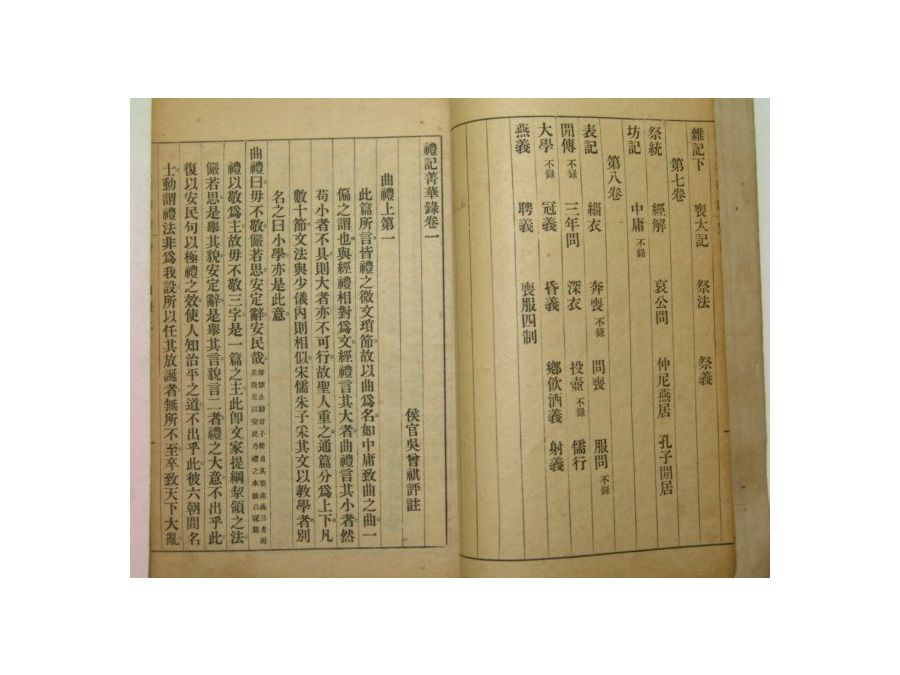 雜記下 喪大記 祭法 祭義
第七卷
祭統 經解 哀公問 仲尼燕居 孔子閒居
坊記 中庸不錄
第八卷
表記 緇衣 奔喪不錄 問喪 服問不錄
閒傳不錄 三年問 深衣 投壺不錄 儒行
大學不錄 冠義 昏義 鄉飲酒義 射義
燕義 聘義 喪服四制
禮記菁華錄卷一
侯官吳曾祺評註
曲禮上第一
此篇所言皆禮之微文瑣節故以曲爲名如中庸致曲之曲一
偏之謂也與經禮相對爲文經禮言其大者曲禮言其小者然
苟小者不具則大者亦不可行故聖人重之通篇分爲上下凡
數十節文法與少儀內則相似宋儒朱子采其文以教學者別
名之曰小學亦是此意
曲禮曰毋不敬儼若思安定辭安民哉
禮以敬爲主故毋不敬三字是一篇之主此卽文家提綱挈領之法
儼若思是舉其貌安定辭是舉其言貌言二者禮之大意不出乎此
復以安民句以極禮之效使人知治平之道不出乎此彼六朝間名
士動謂禮法非爲我設所以任其放誕者無所不至卒致天下大亂